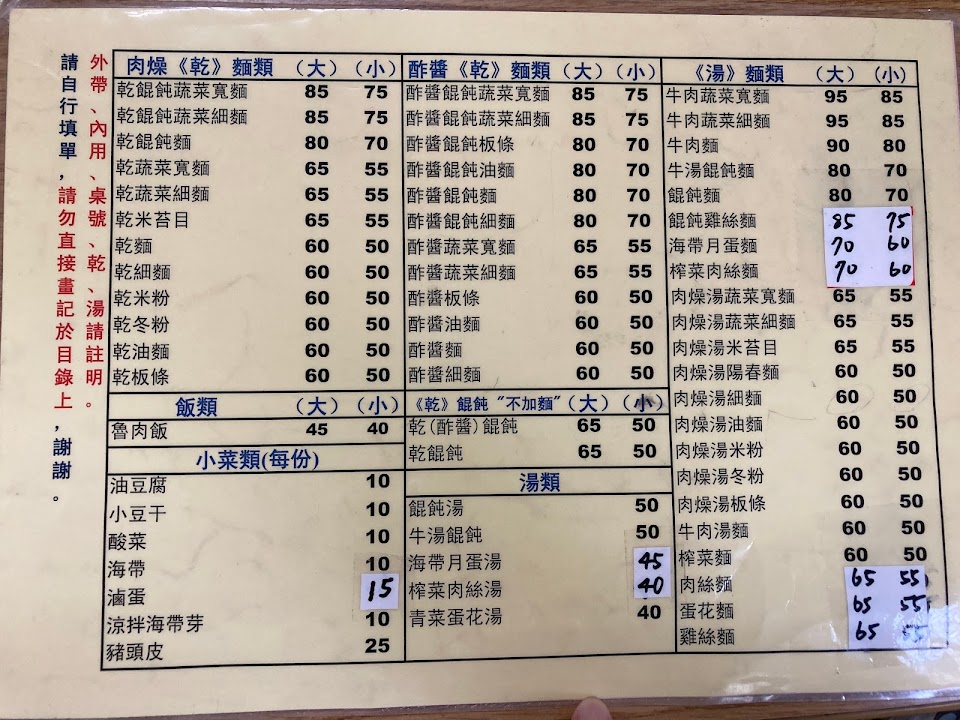 外帶、內用、桌號、乾、湯請註明。
請自行填單,請勿直接畫記於目錄上,謝謝。
肉燥《乾》麵類 (大) (小)
乾餛飩蔬菜寬麵 85 75
乾餛飩蔬菜細麵 85 75
乾餛飩麵 80 70
乾蔬菜寬麵 65 55
乾蔬菜細麵 65 55
乾米苔目 65 55
乾麵 60 50
乾細麵 60 50
乾米粉 60 50
乾冬粉 60 50
乾油麵 60 50
乾板條 60 50
飯類 (大) (小)
魯肉飯 45 40
小菜類(每份)
油豆腐 10
小豆干 10
酸菜 10
海帶 10
滷蛋 15
涼拌海帶芽 10
豬頭皮 25
酢醬《乾》麵類 (大) (小)
酢醬餛飩蔬菜寬麵 85 75
酢醬餛飩蔬菜細麵 85 75
酢醬餛飩板條 80 70
酢醬餛飩油麵 80 70
酢醬餛飩麵 80 70
酢醬餛飩細麵 80 70
酢醬蔬菜寬麵 65 55
酢醬蔬菜細麵 65 55
酢醬板條 60 50
酢醬油麵 60 50
酢醬麵 60 50
酢醬細麵 60 50
《乾》餛飩“不加麵” (大) (小)
乾(酢醬)餛飩 65 50
乾餛飩 65 50
湯類
餛飩湯 50
牛湯餛飩 50
海帶月蛋湯 45
榨菜肉絲湯 40
青菜蛋花湯 40
《湯》麵類 (大) (小)
牛肉蔬菜寬麵 95 85
牛肉蔬菜細麵 95 85
牛肉麵 90 80
牛湯餛飩麵 80 70
餛飩麵 80 70
餛飩雞絲麵 85 75
海帶月蛋麵 70 60
榨菜肉絲麵 70 60
肉燥湯蔬菜寬麵 65 55
肉燥湯蔬菜細麵 65 55
肉燥湯米苔目 65 55
肉燥湯陽春麵 60 50
肉燥湯細麵 60 50
肉燥湯油麵 60 50
肉燥湯米粉 60 50
肉燥湯冬粉 60 50
肉燥湯板條 60 50
牛肉湯麵 60 50
榨菜麵 60 50
肉絲麵 65 55
蛋花麵 65 55
雞絲麵 65 55